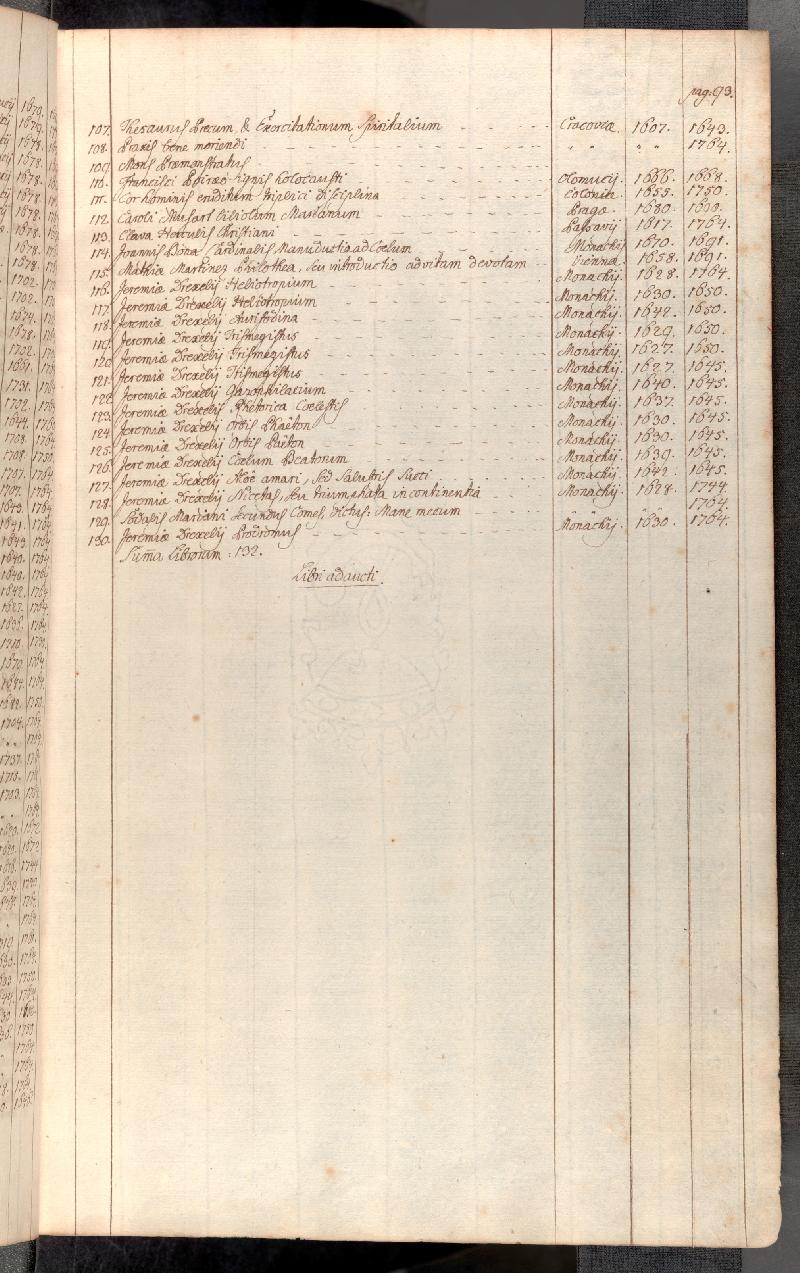 pag: 93.
107. Thesaurus Precum, & Exercitationum Spiritalium Cracoviæ. 1607. 1643.
108. Praxis bene moriendi " " " " 1764.
109. Mons Præmonstratus
110. Francisci lignis holocausti Olomucij. 1666. 1668.
111. Cor hominis eruditum triplici disciplina Coloniæ 1655. 1750.
112. Caroli Musart Liliolum Marianum Pragæ 1680. 1690.
113. Clava Herculis Christiani Passavij 1617. 1764.
114. Joannis Bona Cardinalis Manuductio ad Coelum Monachij 1670. 1691.
115. Mathiæ Martinez Philothea, seu introductio ad vitam devotam Viennæ 1658. 1691.
116. Jeremiæ Drexelij Heliotropium Monachij. 1628. 1764.
117. Jeremiæ Drexelij Heliotropium Monachij. 1630. 1650.
118. Jeremiæ Drexelij Aurifodina Monachij. 1642. 1650.
119. Jeremiæ Drexelij Trismegistus Monachij. 1629. 1650.
120. Jeremiæ Drexelij Trismegistus Monachij. 1627. 1650.
121. Jeremiæ Drexelij Trismegistus Monachij. 1627. 1645.
122. Jeremiæ Drexelij Gazophilacium Monachij. 1640. 1645.
123. Jeremiæ Drexelij Rhetorica Coelestis Monachij. 1637. 1645.
124. Jeremiæ Drexelij Orbis Phaëton Monachij. 1630. 1645.
125. Jeremiæ Drexelij Orbis Phaëton Monachij. 1630. 1645.
126. Jeremiæ Drexelij Coelum Beatorum Monachij. 1639. 1645.
127. Jeremiæ Drexelij Aloe amari, sed Salubris Sucti Monachij. 1642. 1645.
128. Jeremiæ Drexelij Nicetas, seu triumphata incontinentia Monachij. 1628. 1744.
129. Sodalis Mariani Secundus Comes, dictus: Mane mecum " " " " 1764.
130. Jeremiæ Drexelij Prodromus Monachij. 1630. 1764.
Suma Librorum : 132.
Libri adaucti.